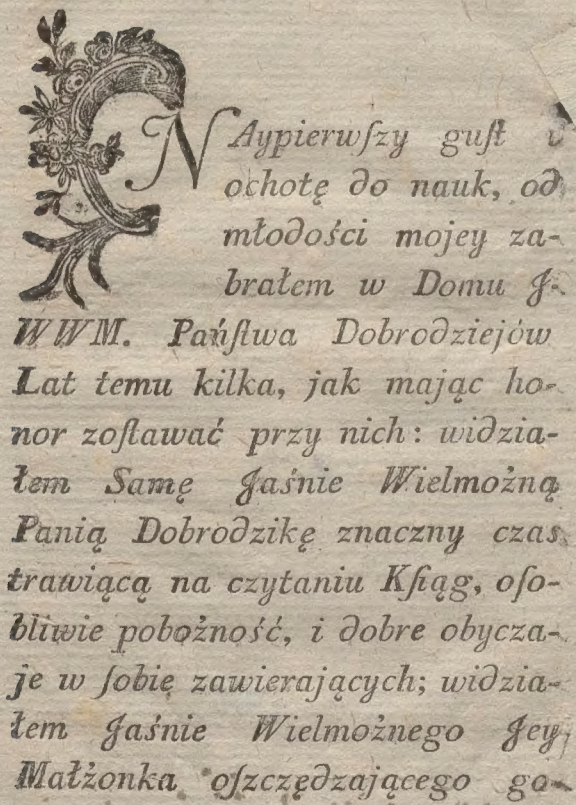 NAypierwſzy guſt i
ochotę do nauk, od
młodości mojey za-
brałem w Domu J-
WWM. Pańſtwa Dobrodziejów
Lat temu kilka, jak mając ho-
nor zoſtawać przy nich: widzia-
łem Samę Jaśnie Wielmożną
Panią Dobrodzikę znaczny czas
trawiącą na czytaniu Kſiąg, oſo-
bliwie pobożność, i dobre obycza-
je w ſobie zawierających; widzia-
łem Jaśnie Wielmożnego Jey
Małżonka oſzczędzającego go-